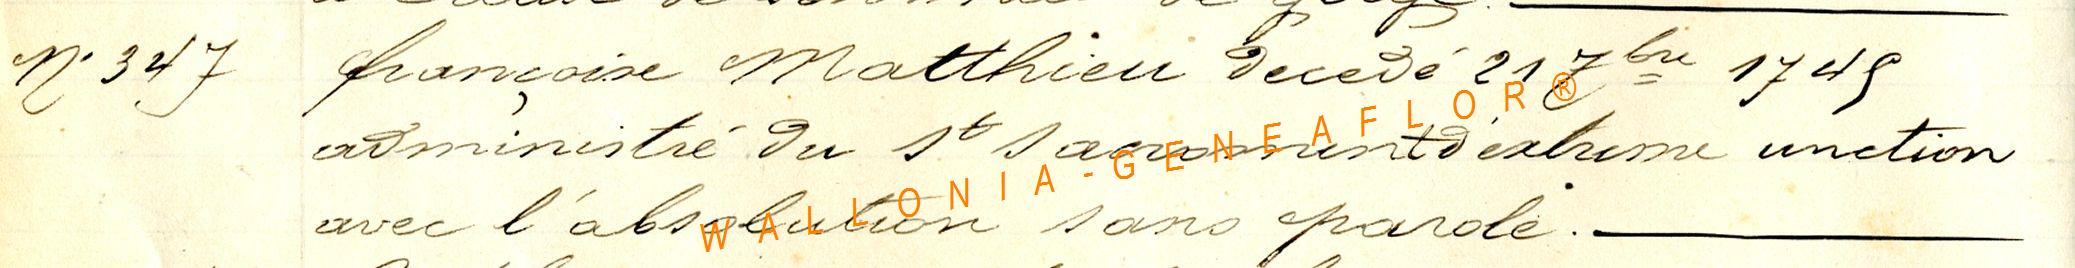 N° 347 françoise Matthieu decedé 21 7bre 1749
administré du st sacrement d'extreme unction
avec l'absolution sans parole.
WALLONIA-GENEAFLOR®